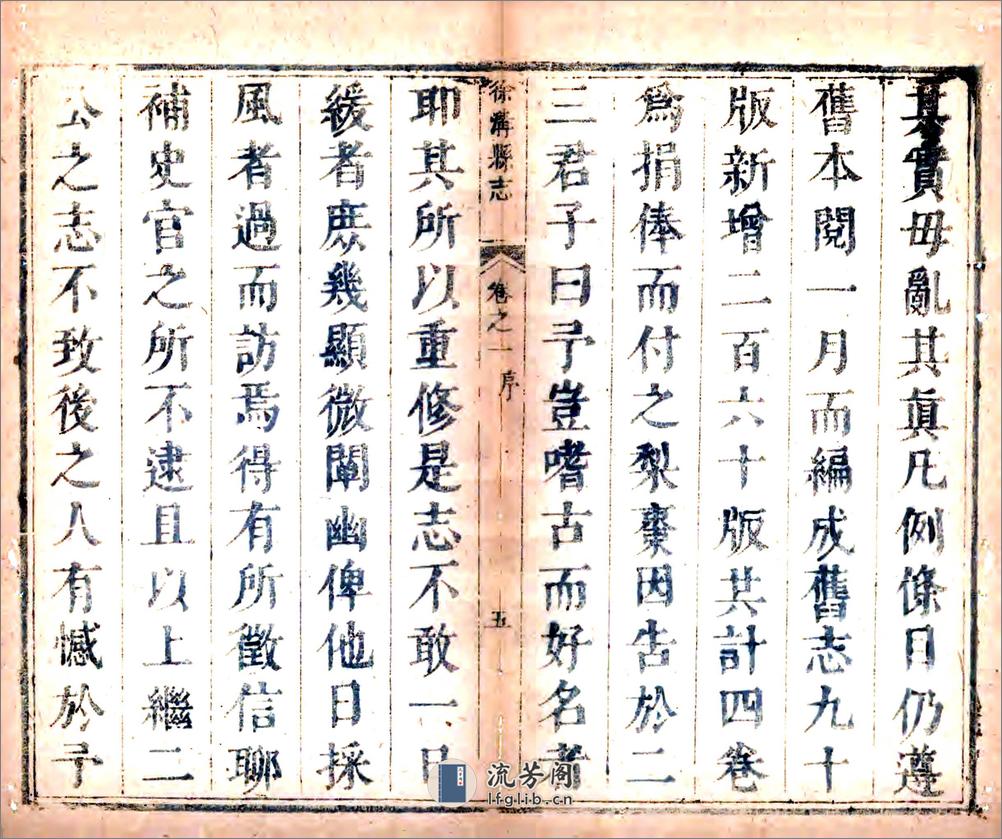 其實毋亂其眞凡例條目仍遵
舊本閱一月而編成舊志九十
版新增二百六十版共計四卷
爲捐俸而付之梨棗因告於二
三君子曰予豈嗜古而好名者
徐溝縣志
卷之一 序
五
耶其所以重修是志不敢一日
緩者庶幾顯微闡幽俾他日採
風者過而訪焉得有所徵信聊
補史官之所不逮且以上繼二
公之志不致後之人有憾於予
流芳阁
lfglib.cn